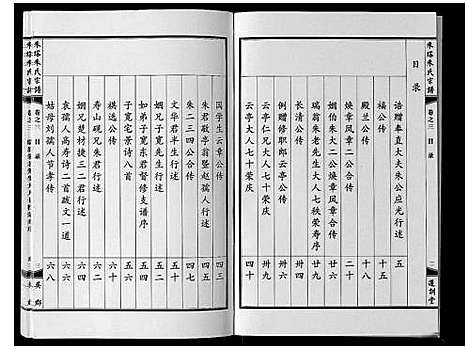 朱塔朱氏宗譜
卷之三 目录
目录
诰赠奉直大夫朱公应光行述 五
福公传 十六
殿兰公传 十八
焕章风章二公传 二十
姻伯朱大二公焕章风章合传 廿四
瑞翁朱老先生大人七秩荣寿序 廿九
长清公传 卅四
例赠修职郎云亭公传 卅六
云亭仁兄大人七十荣庆 卅九
云亭大人七十荣庆 四十
国学生云章公传 四三
朱君敬亭翁暨赵孺人行述 四五
朱二三四公合传 四七
文华君半生行述 五十
姻兄子宽先生行述 五二
如弟子宽东君督修支谱序 五四
子宽宅景诗八首 五六
棋选公传 六十
寿山砚兄朱君行述 六二
姻兄楚材捷三二君行述 六四
袁孺人高寿诗二首跋文一道 六六
姑母刘孺人节孝传 六八
三
二